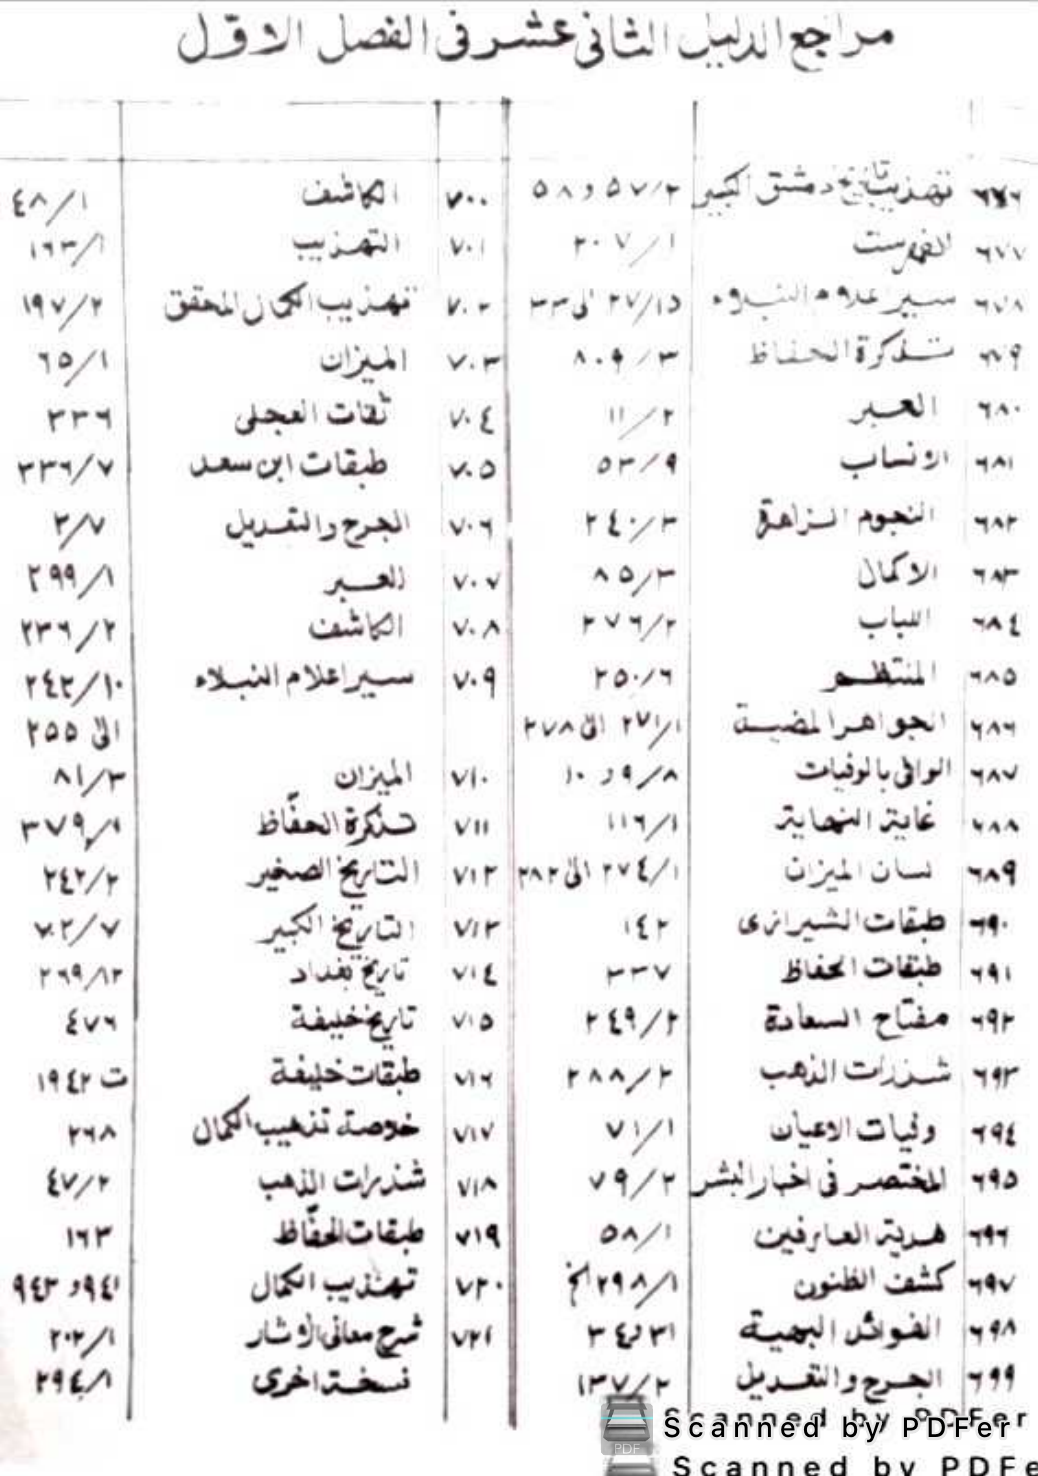 مراجع الدليل الثانى عشر فى الفصل الاوّل
٦٧٦ تهذيب تاريخ دمشق الكبير ٥٧/٢ و ٥٨
٦٧٧ الفهرست ٢٠٧/١
٦٧٨ سير اعلام النبلاء ٢٧/١٥ الى ٣٣
٦٧٩ تذكرة الحفاظ ٨٠٩/٣
٦٨٠ العبر ١١/٢
٦٨١ الانساب ٥٣/٩
٦٨٢ النجوم الزاهرة ٢٤٠/٣
٦٨٣ الاكمال ٨٥/٣
٦٨٤ اللباب ٢٧٦/٢
٦٨٥ المنتظم ٢٥٠/٦
٦٨٦ الجواهر المضية ٢٧١/١ الى ٢٧٨
٦٨٧ الوافى بالوفيات ٩/٨ و ١٠
٦٨٨ غاية النهاية ١١٦/١
٦٨٩ لسان الميزان ٢٧٤/١ الى ٢٨٢
٦٩٠ طبقات الشيرازى ١٤٢
٦٩١ طبقات الحفاظ ٣٣٧
٦٩٢ مفتاح السعادة ٢٤٩/٢
٦٩٣ شذرات الذهب ٢٨٨/٢
٦٩٤ وفيات الاعيان ٧١/١
٦٩٥ المختصر فى اخبار البشر ٧٩/٢
٦٩٦ هدية العارفين ٥٨/١
٦٩٧ كشف الظنون ٢٩٨/١ الخ
٦٩٨ الفوائد البهية ٣١ و ٣٤
٦٩٩ الجرح والتعديل ١٣٧/٢
٧٠٠ الكاشف ٤٨/١
٧٠١ التهذيب ١٦٣/١
٧٠٢ تهذيب الكمال المحقق ١٩٧/٢
٧٠٣ الميزان ٦٥/١
٧٠٤ ثقات العجلى ٣٣٦
٧٠٥ طبقات ابن سعد ٣٣٦/٧
٧٠٦ الجرح والتعديل ٣/٧
٧٠٧ العبر ٢٩٩/١
٧٠٨ الكاشف ٢٣٦/٢
٧٠٩ سير اعلام النبلاء ٢٤٢/١٠
الى ٢٥٥
٧١٠ الميزان ٨١/٣
٧١١ تذكرة الحفّاظ ٣٧٩/١
٧١٢ التاريخ الصغير ٢٤٢/٢
٧١٣ التاريخ الكبير ٧٠٢/٧
٧١٤ تاريخ بغداد ٢٦٩/١٢
٧١٥ تاريخ خليفة ٤٧٦
٧١٦ طبقات خليفة ت ١٩٤٢
٧١٧ خلاصة تذهيب الكمال ٢٦٨
٧١٨ شذرات الذهب ٤٧/٢
٧١٩ طبقات الحفّاظ ١٦٣
٧٢٠ تهذيب الكمال ٩٤١ و ٩٤٣
٧٢١ شرح معانى الاثار ٢٠٢/١
نسخة اخرى ٢٩٤/١
Scanned by PDFer
Scanned by PDFe